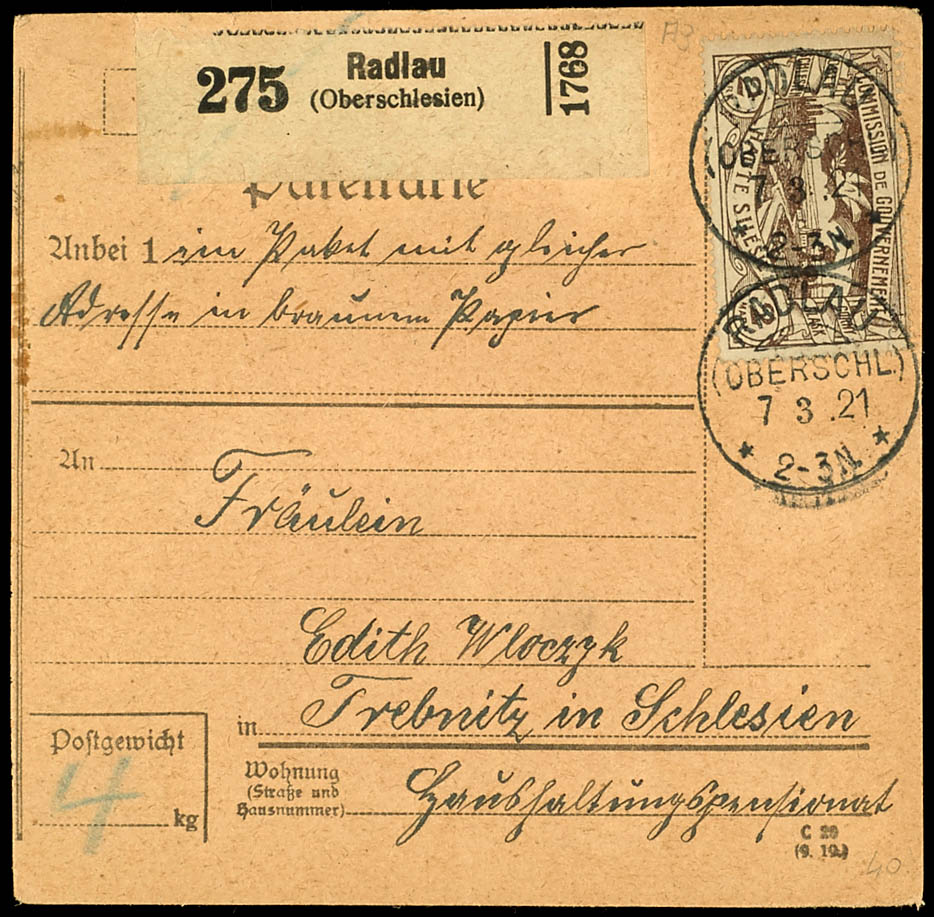 275 Radlau
(Oberschlesien)
1768
A3
Paketkarte
Anbei 1 im Paket mit gleicher
Adresse in braunem Papier
COMMISSION DE GOUVERNEMENT
HAUTE SILESIE
RADLAU
(OBERSCHL.)
7 3 .21
2-3N
RADLAU
(OBERSCHL.)
7 3 .21
* 2-3N *
An
Fräulein
Edith Wloczyk
in Trebnitz in Schlesien
Postgewicht
4 kg
Wohnung
(Straße und
Hausnummer)
Haushaltungspensionat
C 20
(9. 19.)
40